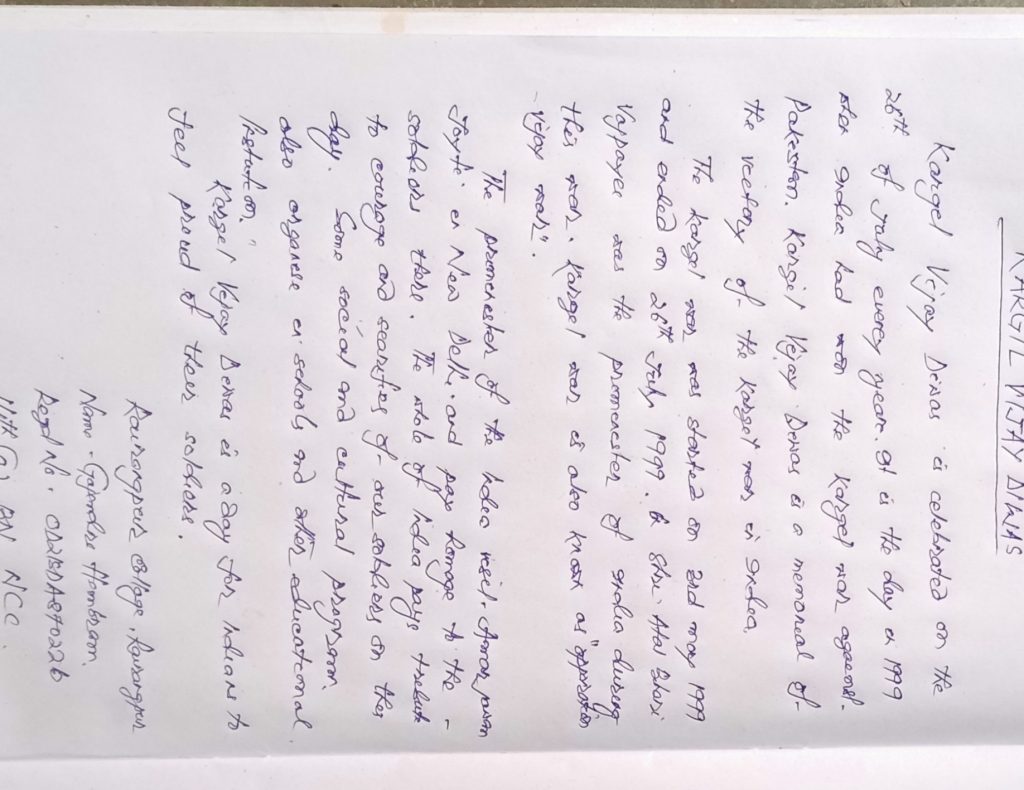 KARGIL VIJAY DIWAS
Kargil Vijay Diwas is celebrated on the
26th of July every year. It is the day in 1999
when India had won the Kargil war against
Pakistan. Kargil Vijay Diwas is a memorial of
the victory of the Kargil war in India.
The Kargil war was started on 2nd may 1999
and ended on 26th July 1999. Shri Atal Bhari
Vajpayee was the primeminister of India during
this war. Kargil war is also known as "opperation
vijay war".
The primeminister of the India visit Amar jawan
Jayti in New Delhi and pay homage to the
soldiers there. The whole of India pays tribute
to courage and sacrifies of our soldiers on this
day. Some social and cultural program
also organise in schools and other educational
Instution."
Kargil Vijay Diwas is a day for Indians to
feel proud of their soldiers.
Rairangpur College, Rairangpur
Name - Gajendra Hembram
Regd No.
NCC